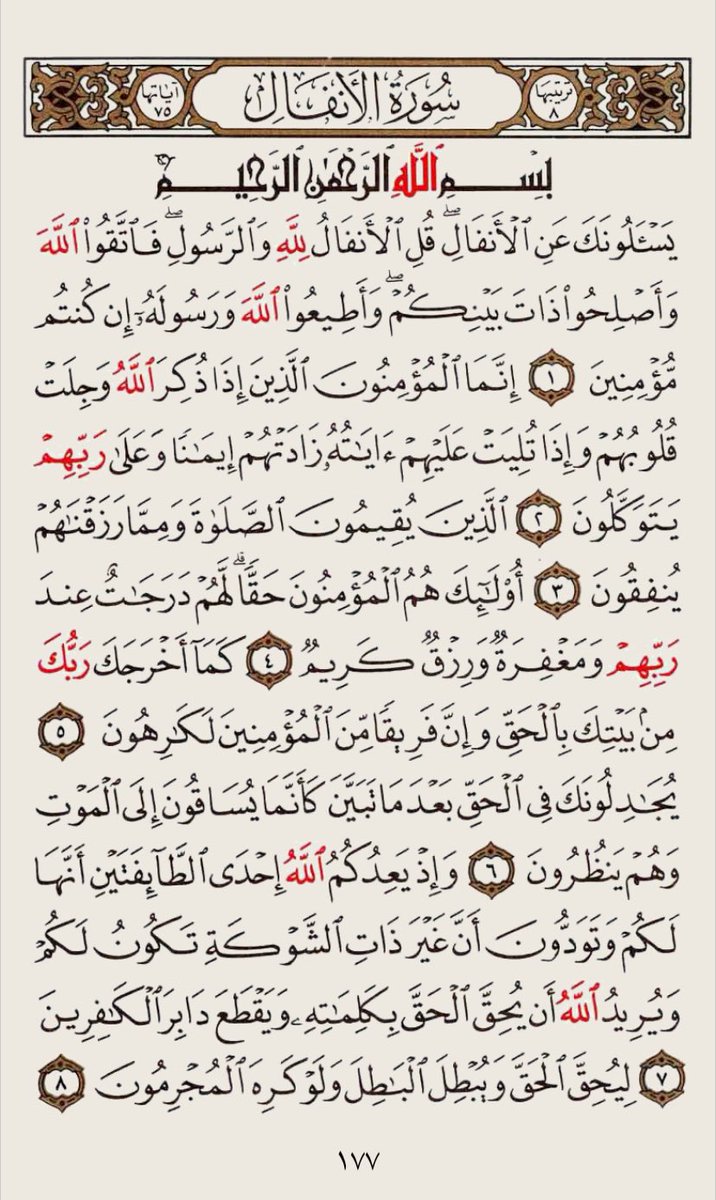 ترتيبها ٨ سُورَةُ الأَنفَال آياتها ٧٥
بِسْمِ ٱللَّهِ ٱلرَّحْمَٰنِ ٱلرَّحِيمِ
يَسْـَٔلُونَكَ عَنِ ٱلْأَنفَالِۖ قُلِ ٱلْأَنفَالُ لِلَّهِ وَٱلرَّسُولِۖ فَٱتَّقُوا۟ ٱللَّهَ
وَأَصْلِحُوا۟ ذَاتَ بَيْنِكُمْۖ وَأَطِيعُوا۟ ٱللَّهَ وَرَسُولَهُۥٓ إِن كُنتُم
مُّؤْمِنِينَ ١ إِنَّمَا ٱلْمُؤْمِنُونَ ٱلَّذِينَ إِذَا ذُكِرَ ٱللَّهُ وَجِلَتْ
قُلُوبُهُمْ وَإِذَا تُلِيَتْ عَلَيْهِمْ ءَايَٰتُهُۥ زَادَتْهُمْ إِيمَٰنًا وَعَلَىٰ رَبِّهِمْ
يَتَوَكَّلُونَ ٢ ٱلَّذِينَ يُقِيمُونَ ٱلصَّلَوٰةَ وَمِمَّا رَزَقْنَٰهُمْ
يُنفِقُونَ ٣ أُو۟لَٰٓئِكَ هُمُ ٱلْمُؤْمِنُونَ حَقًّاۚ لَّهُمْ دَرَجَٰتٌ عِندَ
رَبِّهِمْ وَمَغْفِرَةٌ وَرِزْقٌ كَرِيمٌ ٤ كَمَآ أَخْرَجَكَ رَبُّكَ
مِنۢ بَيْتِكَ بِٱلْحَقِّ وَإِنَّ فَرِيقًا مِّنَ ٱلْمُؤْمِنِينَ لَكَٰرِهُونَ ٥
يُجَٰدِلُونَكَ فِى ٱلْحَقِّ بَعْدَ مَا تَبَيَّنَ كَأَنَّمَا يُسَاقُونَ إِلَى ٱلْمَوْتِ
وَهُمْ يَنظُرُونَ ٦ وَإِذْ يَعِدُكُمُ ٱللَّهُ إِحْدَى ٱلطَّآئِفَتَيْنِ أَنَّهَا
لَكُمْ وَتَوَدُّونَ أَنَّ غَيْرَ ذَاتِ ٱلشَّوْكَةِ تَكُونُ لَكُمْ
وَيُرِيدُ ٱللَّهُ أَن يُحِقَّ ٱلْحَقَّ بِكَلِمَٰتِهِۦ وَيَقْطَعَ دَابِرَ ٱلْكَٰفِرِينَ
٧ لِيُحِقَّ ٱلْحَقَّ وَيُبْطِلَ ٱلْبَٰطِلَ وَلَوْ كَرِهَ ٱلْمُجْرِمُونَ ٨
١٧٧